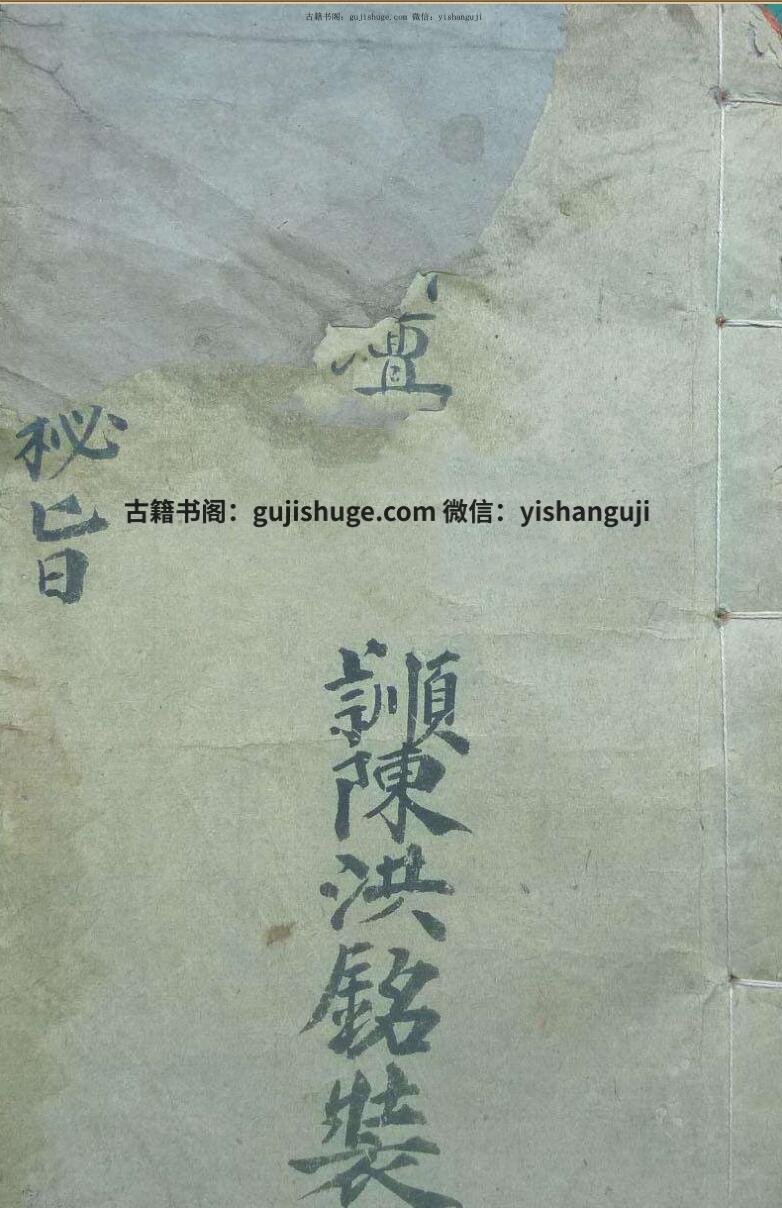 古籍书阁：gujishuge.com 微信：yishanguji
壇
順訓陳洪銘裝
秘旨
古籍书阁：gujishuge.com 微信：yishanguji